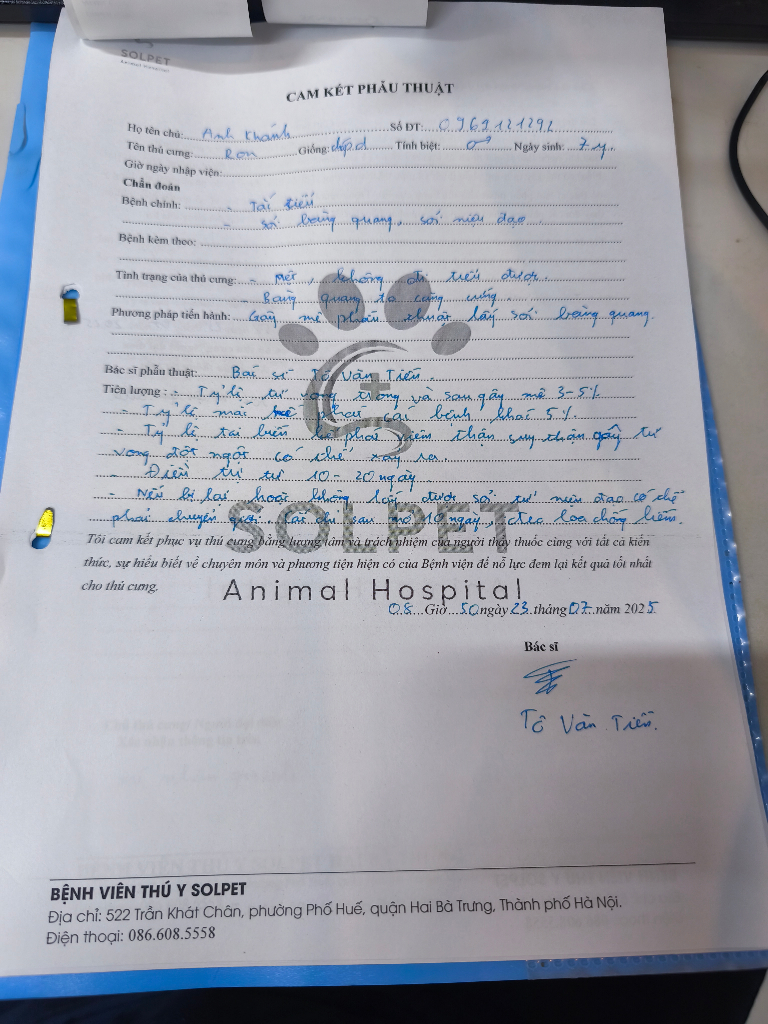 SOLPET
Animal Hospital
CAM KẾT PHẪU THUẬT
Họ tên chủ: Anh Khánh Số ĐT: 0969121292
Tên thú cưng: Ron Giống: Tính biệt: ♂ Ngày sinh: 7 y
Giờ ngày nhập viện:
Chẩn đoán
Bệnh chính: - Tắc tiểu
- sỏi bàng quang, sỏi niệu đạo
Bệnh kèm theo:
Tình trạng của thú cưng: - Mệt, không đi tiểu được.
- Bàng quang to căng cứng.
Phương pháp tiến hành: Gây mê phẫu thuật lấy sỏi bàng quang
Bác sĩ phẫu thuật: Bác sĩ Tô Văn Tiến.
Tiên lượng: - Tỷ lệ tử vong trong và sau gây mê 3-5%
- Tỷ lệ mắc phải các bệnh khác 5%
- Tỷ lệ tai biến viêm thận suy thận gây tử
vong đột ngột có thể xảy ra
- Điều trị từ 10-20 ngày
- Nếu bị lại hoặc không lấy được sỏi từ niệu đạo có thể
phải chuyển giới. Cắt chỉ sau mổ 10 ngày, đeo loa chống liếm.
SOLPET
Tôi cam kết phục vụ thú cưng bằng lương tâm và trách nhiệm của người thầy thuốc cùng với tất cả kiến
thức, sự hiểu biết về chuyên môn và phương tiện hiện có của Bệnh viện để nỗ lực đem lại kết quả tốt nhất
cho thú cưng.
Animal Hospital
08 Giờ 50 ngày 23 tháng 07 năm 2025
Bác sĩ
Tô Văn Tiến.
BỆNH VIÊN THÚ Y SOLPET
Địa chỉ: 522 Trần Khát Chân, phường Phố Huế, quận Hai Bà Trưng, Thành phố Hà Nội.
Điện thoại: 086.608.5558